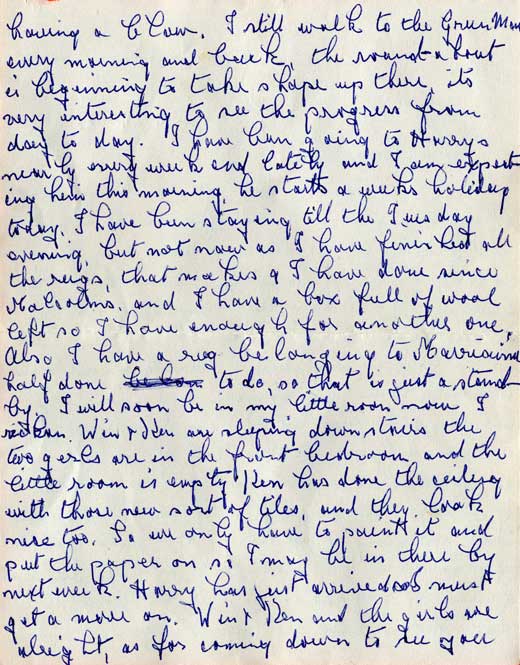 having a blow. I still walk to the Green Man
every morning and back, the round-about
is beginning to take shape up there, its
very interesting to see the progress from
day to day. I have been going to Harrys
nearly every week end lately and I am expect
ing him this morning, he starts a weeks holiday
today. I have been staying till the Tuesday
evening, but not now as I have finished all
the rugs, that makes 9 I have done since
Malcolms, and I have a box full of wool
left so I have enough for another one.
Also I have a rug belonging to
half done to do, so that is just a stand
by. I will soon be in my little room now I
reckon. Win & Ken are sleeping down stairs the
two girls are in the front bedroom and the
little room is empty Ken has done the ceiling
with those new sort of tiles, and they look
nice too. So we only have to paint it and
put the paper on so I may be in there by
next week. Harry has just arrived so must
get a move on. Win & Ken and the girls are
alright, as for coming down to see you